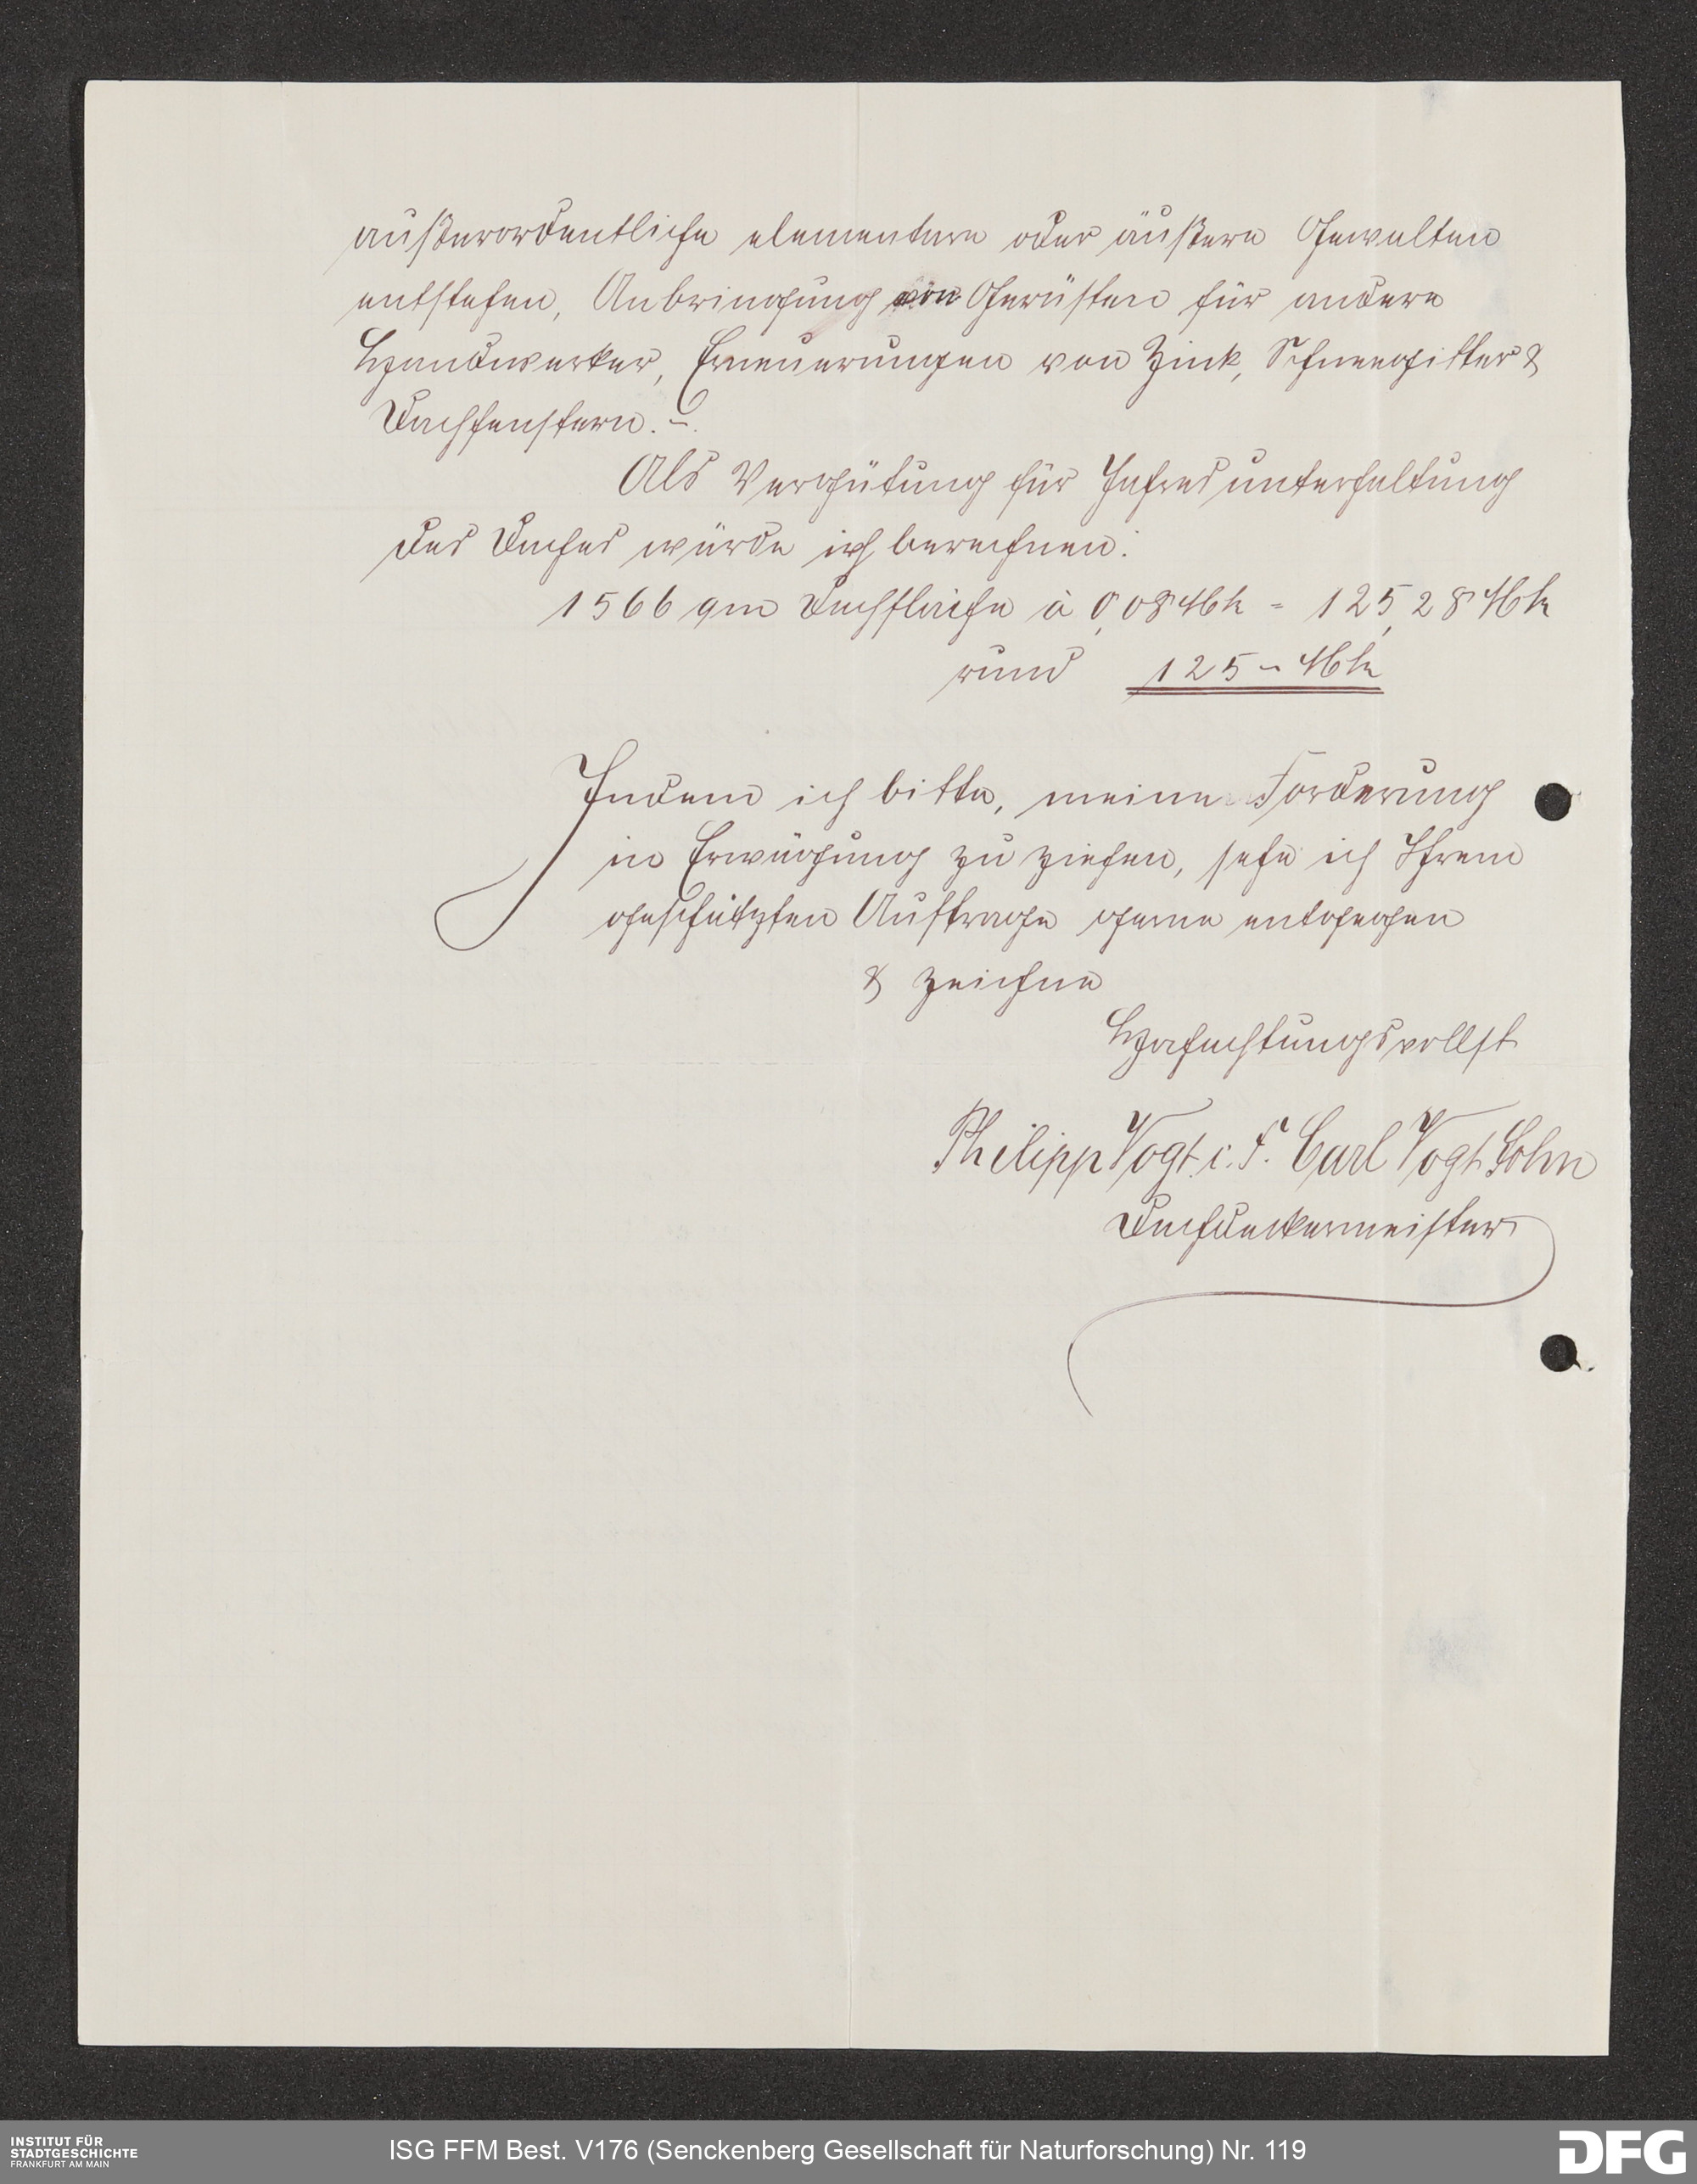 außerordentliche elementare oder äußere Gewalten
entstehen, Anbringung von Gerüsten für andere
Handwerker, Erneuerungen von Zink, Schneegitter &
Dachfenstern. –.
Als Vergütung für Jahresunterhaltung
des Daches würde ich berechnen:
1566 qm Dachfläche à 0,08 Mk = 125,28 Mk
rund 125 – Mk
Indem ich bitte, meine Forderung
in Erwägung zu ziehen, sehe ich Ihrem
geschätzten Auftrage gerne entgegen
& zeichne
Hochachtungsvollst
Philipp Vogt i. F. Carl Vogt Sohn
Dachdeckermeister
INSTITUT FÜR
STADTGESCHICHTE
FRANKFURT AM MAIN
ISG FFM Best. V176 (Senckenberg Gesellschaft für Naturforschung) Nr. 119
DFG